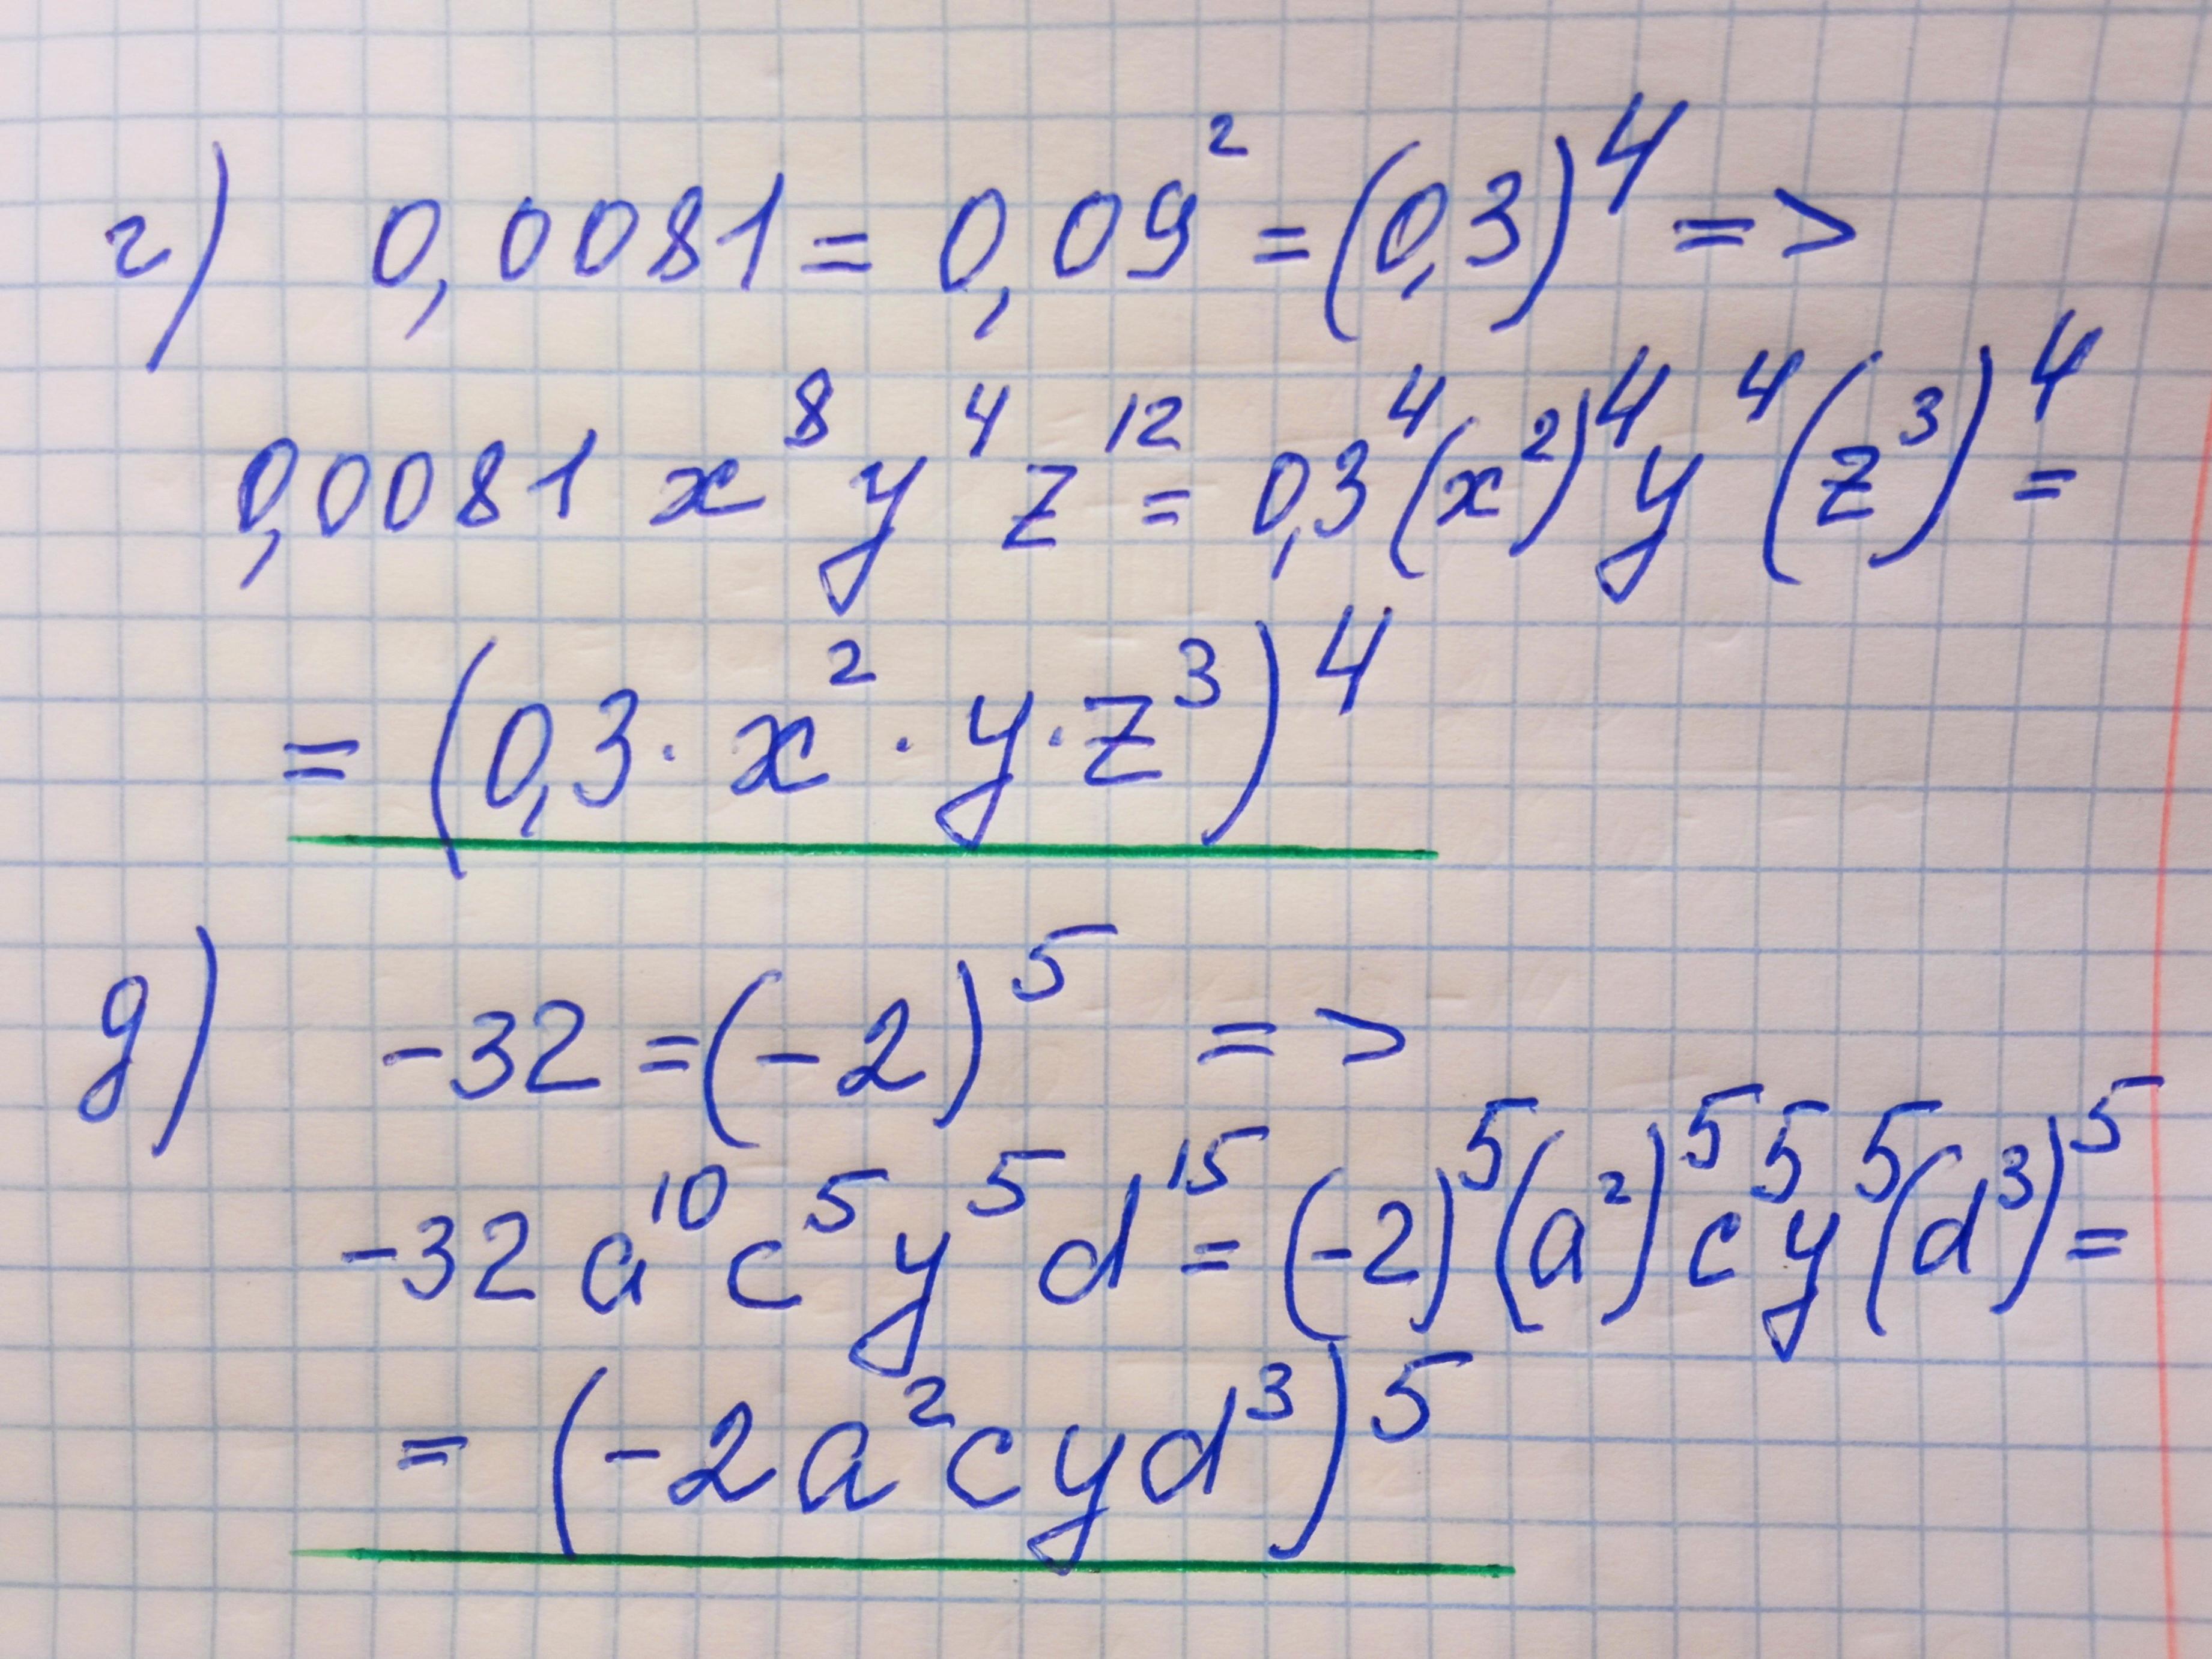 г) 0,0081 = 0,09² = (0,3)⁴ =>
0,0081 x⁸ y⁴ z¹² = 0,3⁴ (x²)⁴ y⁴ (z³)⁴ =
= (0,3 · x² · y · z³)⁴
g) -32 = (-2)⁵ =>
-32 a¹⁰ c⁵ y⁵ d¹⁵ = (-2)⁵ (a²)⁵ c⁵ y⁵ (d³)⁵ =
= (-2a²cyd³)⁵